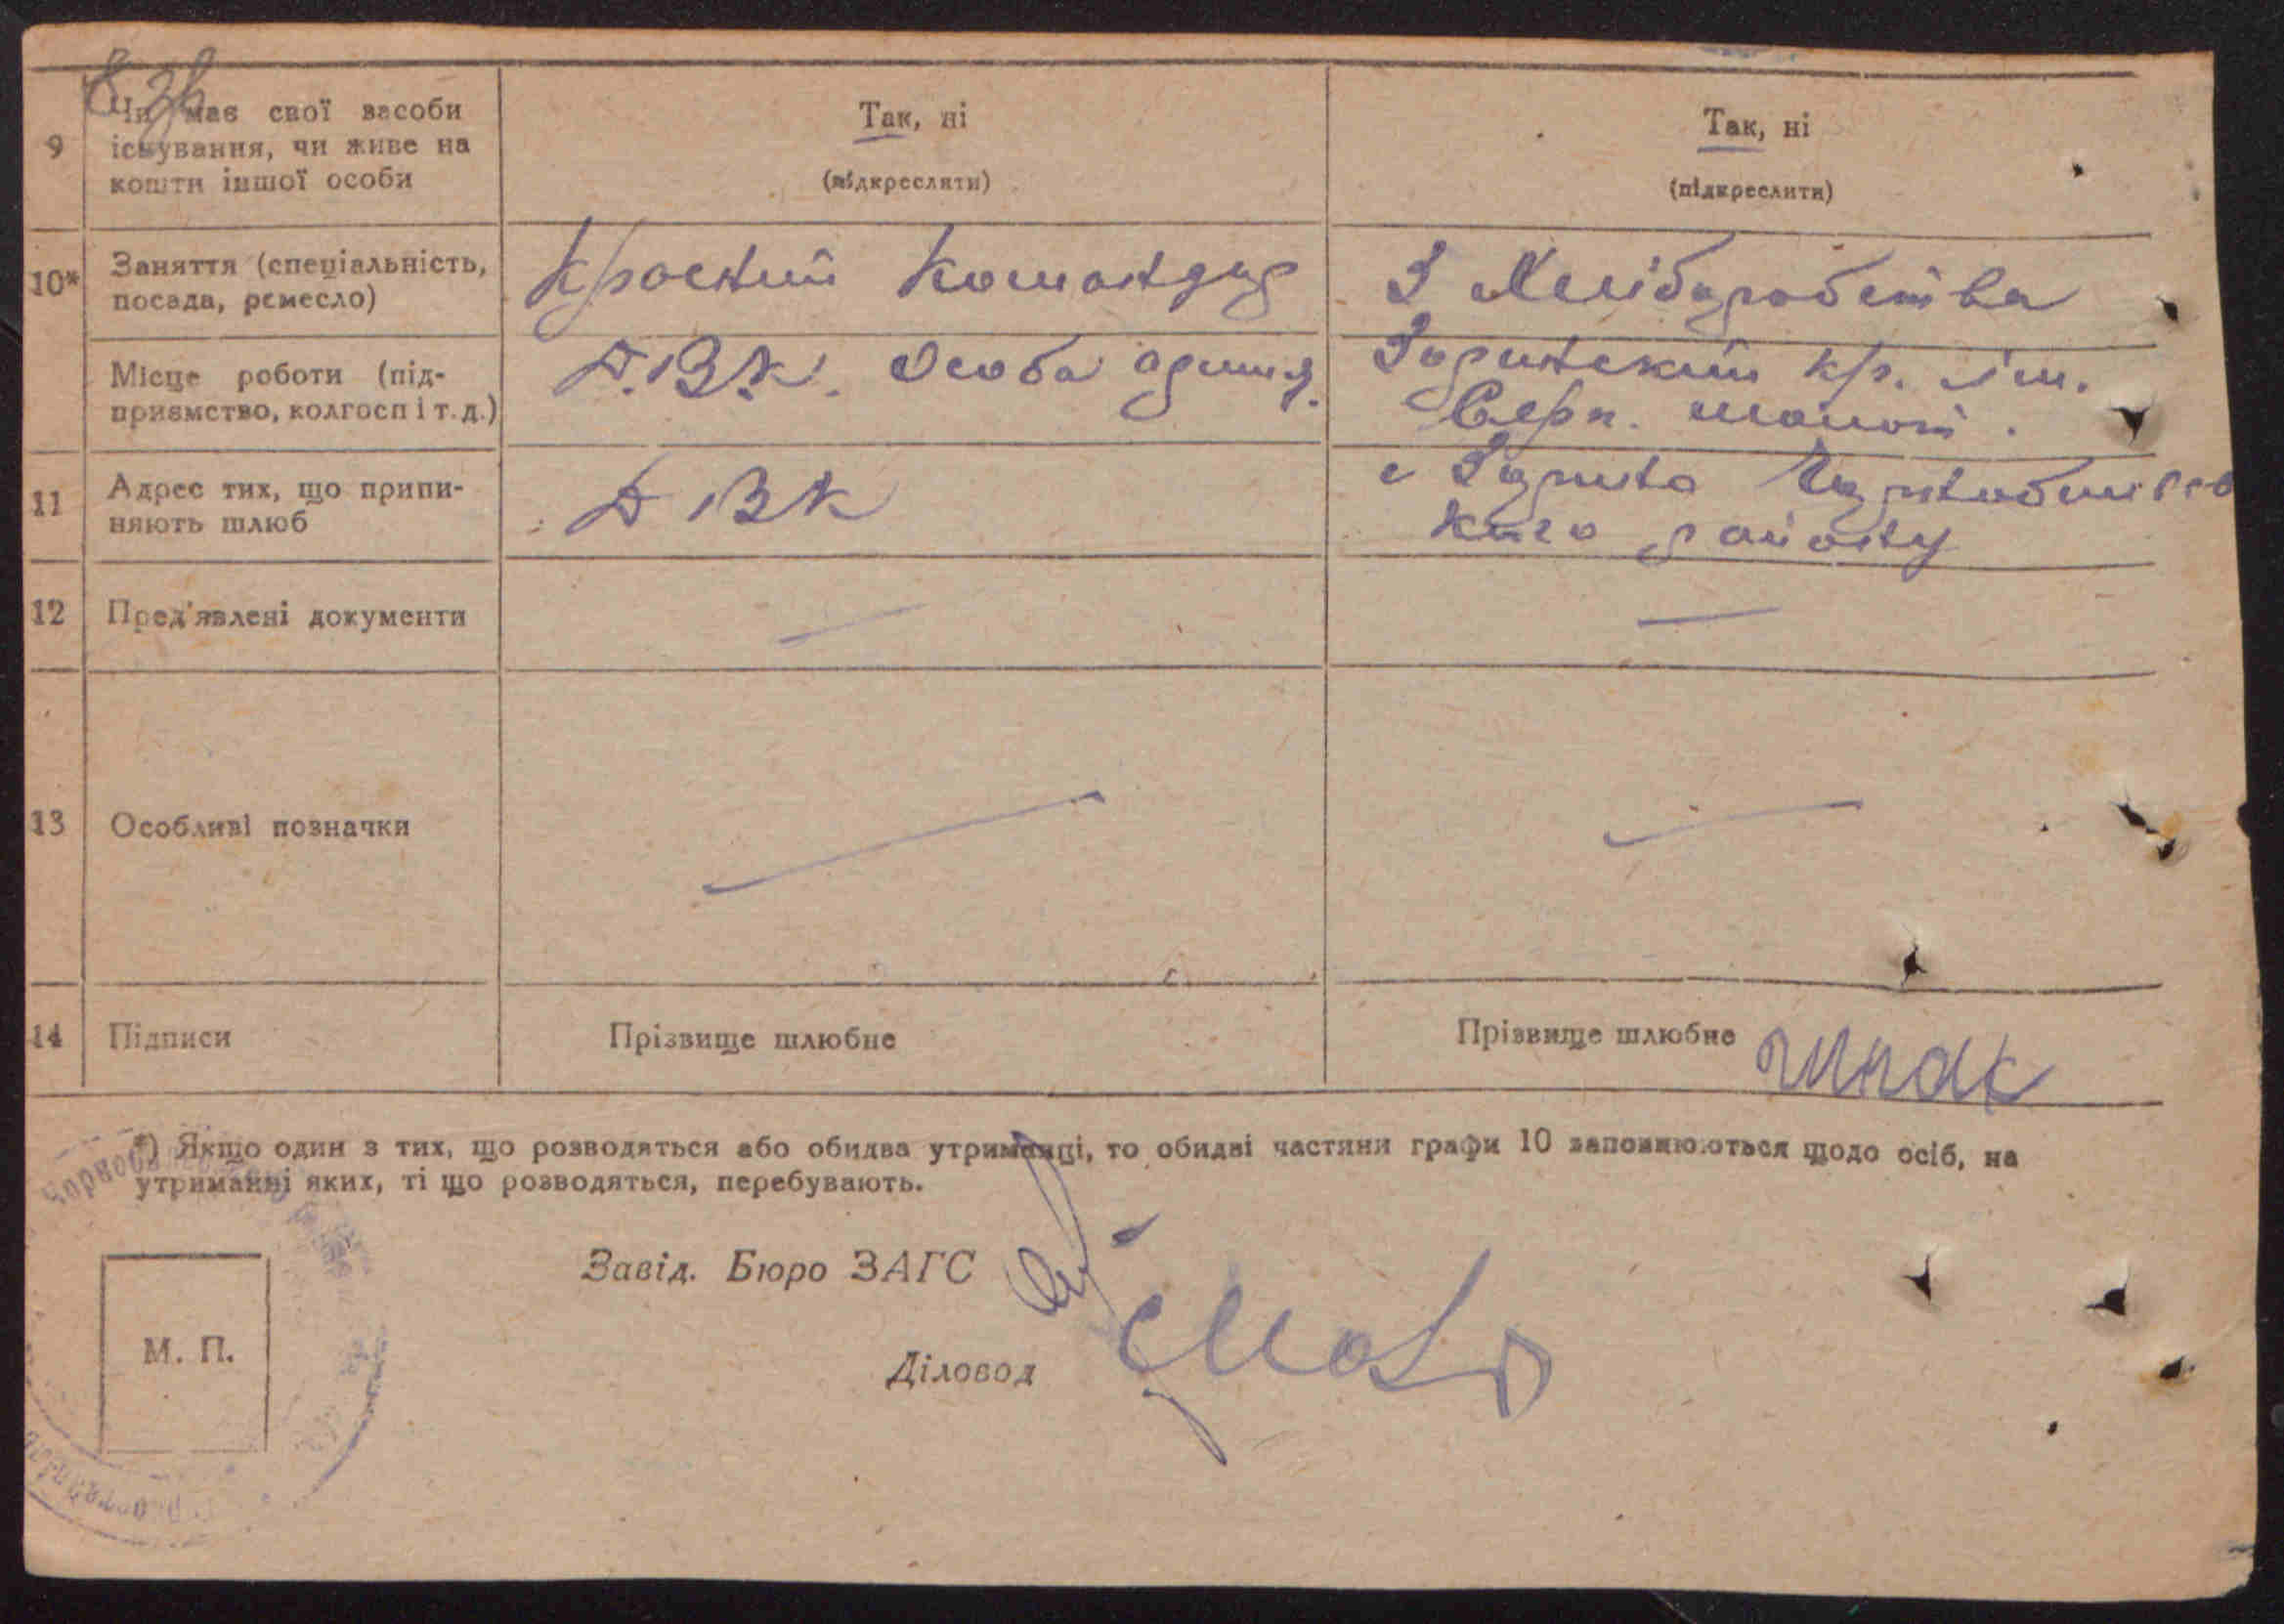 9
Чи має свої засоби
існування, чи живе на
кошти іншої особи
Так, ні
(підкреслити)
Так, ні
(підкреслити)
10*
Заняття (спеціальність,
посада, ремесло)
Красний Командир
З Хлібаробства
Місце роботи (під-
приємство, колгосп і т. д.)
Д.В.К. Особа
Зоринский к/г. ім.
Серп. молот.
11
Адрес тих, що припи-
няють шлюб
ДВК
с Зорина
кого району
12
Пред'явлені документи
—
—
13
Особливі позначки
—
—
14
Підписи
Прізвище шлюбне
Прізвище шлюбне
*) Якщо один з тих, що розводяться або обидва утриманці, то обидві частини графи 10 заповнюються щодо осіб, на
утриманні яких, ті що розводяться, перебувають.
Завід. Бюро ЗАГС
Діловод
М. П.